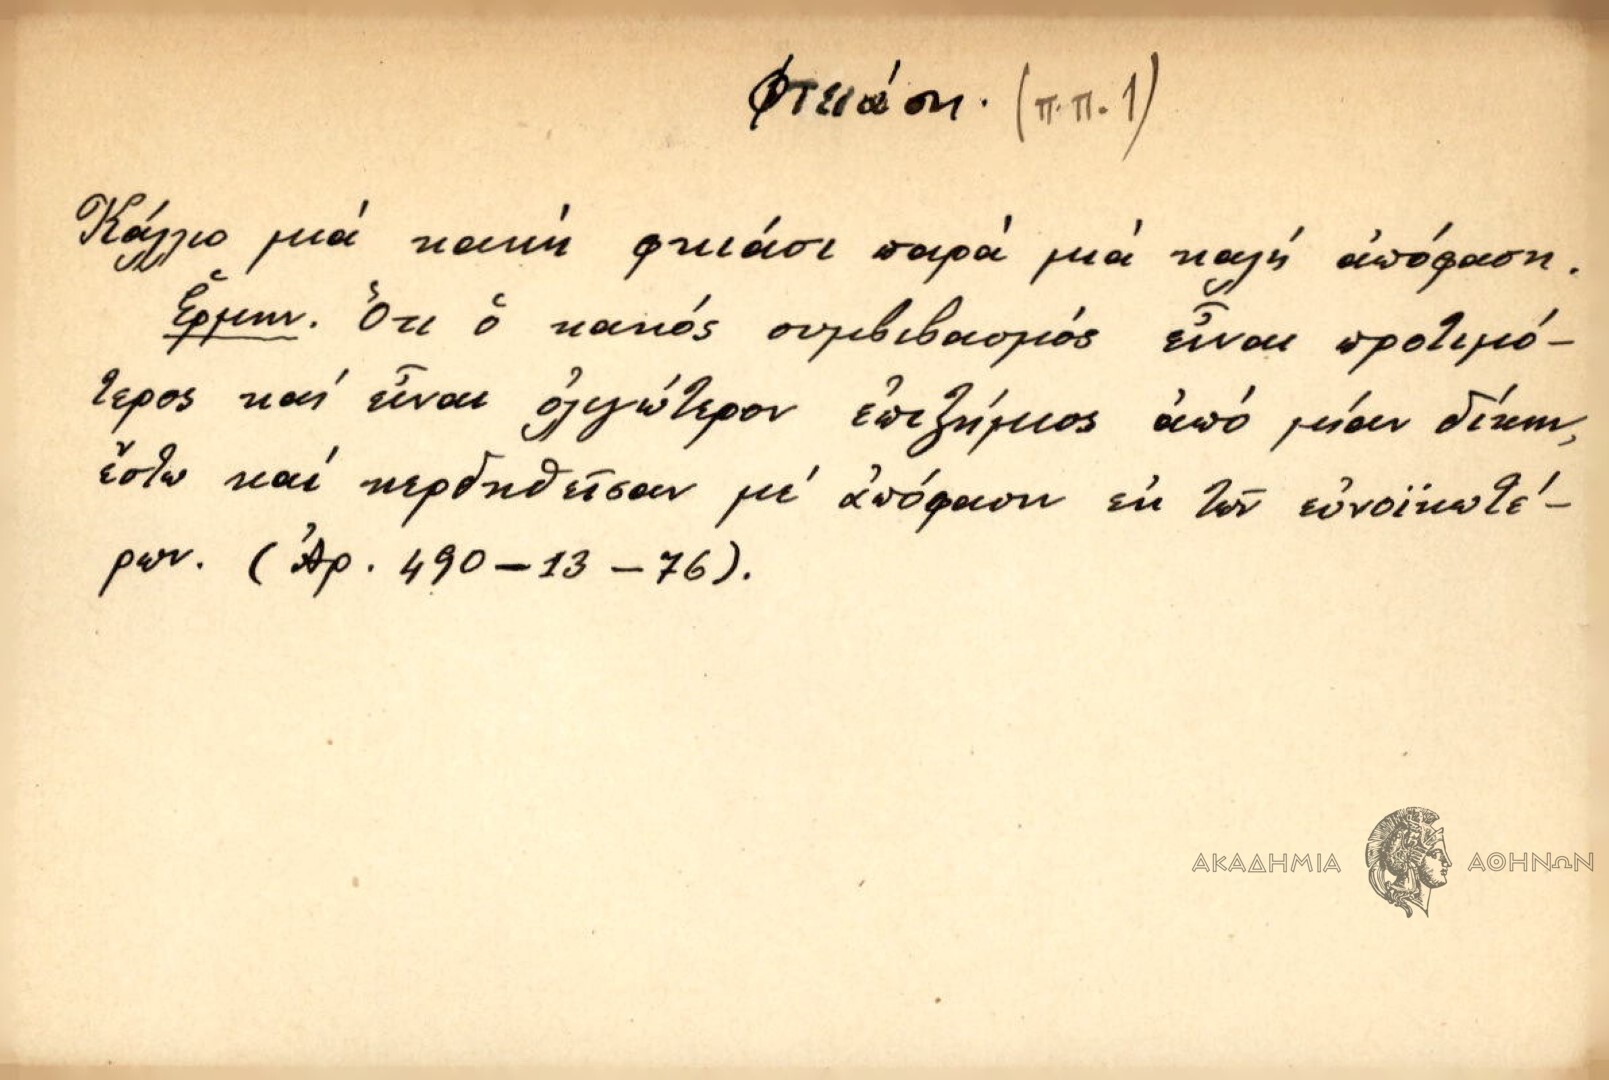 Φτειάση. (π.π. 1)
Κάλλιο μιά κακή φκιάσι παρά μιά καλή ἀπόφαση.
Ἑρμην. Ὅτι ὁ κακός συμβιβασμός εἶναι προτιμό-
τερος καί εἶναι ὀλιγώτερον ἐπιζήμιος ἀπό μίαν δίκην,
ἔστω καί κερδηθεῖσαν μέ ἀπόφασην ἐκ τῶν εὐνοϊκωτέ-
ρων. (Ἀρ. 490-13-76).
ΑΚΑΔΗΜΙΑ ΑΘΗΝΩΝ